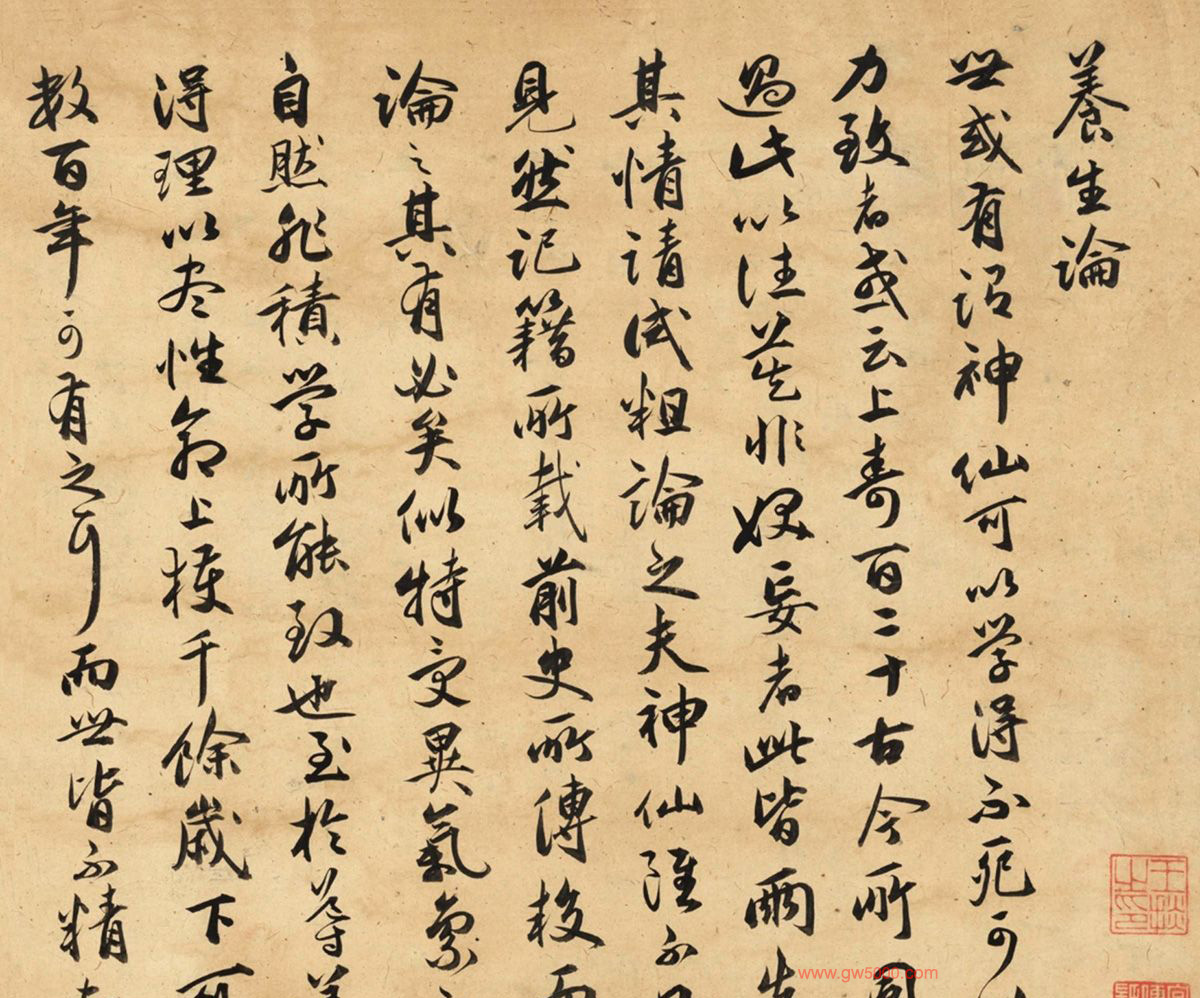 養生論
世或有謂神仙可以學得不死可
力致者或云上壽百二十古今所同
過此以往莫非妖妄者此皆兩失
其情請試粗論之夫神仙雖不目
見然記籍所載前史所傳較而
論之其有必矣似特受異氣稟
自然非積學所能致也至於導養
得理以盡性命上獲千餘歲下可
數百年可有之耳而世皆不精
www.gw5000.com